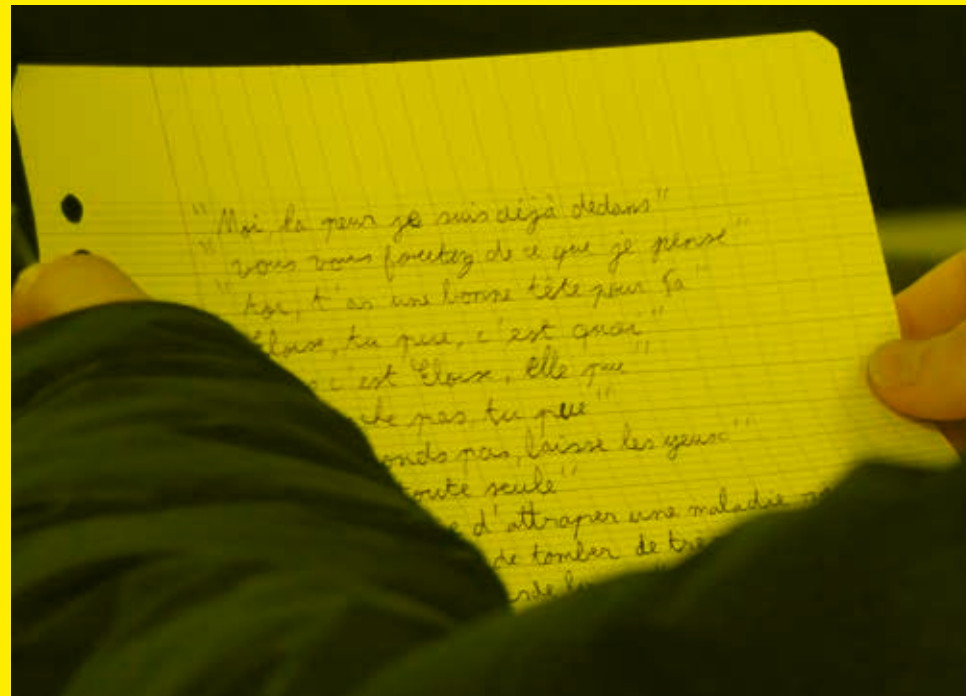 "Moi, la peur je suis déjà dedans"
"vous vous foutez de ce que je pense"
"toi, t'as une bonne tête pour ça"
Eloise, tu pue, c'est quoi"
c'est Eloise, Elle pue"
pas, tu pue"
pas, laisse les yeux"
toute seule"
d'attraper une maladie
de tomber de